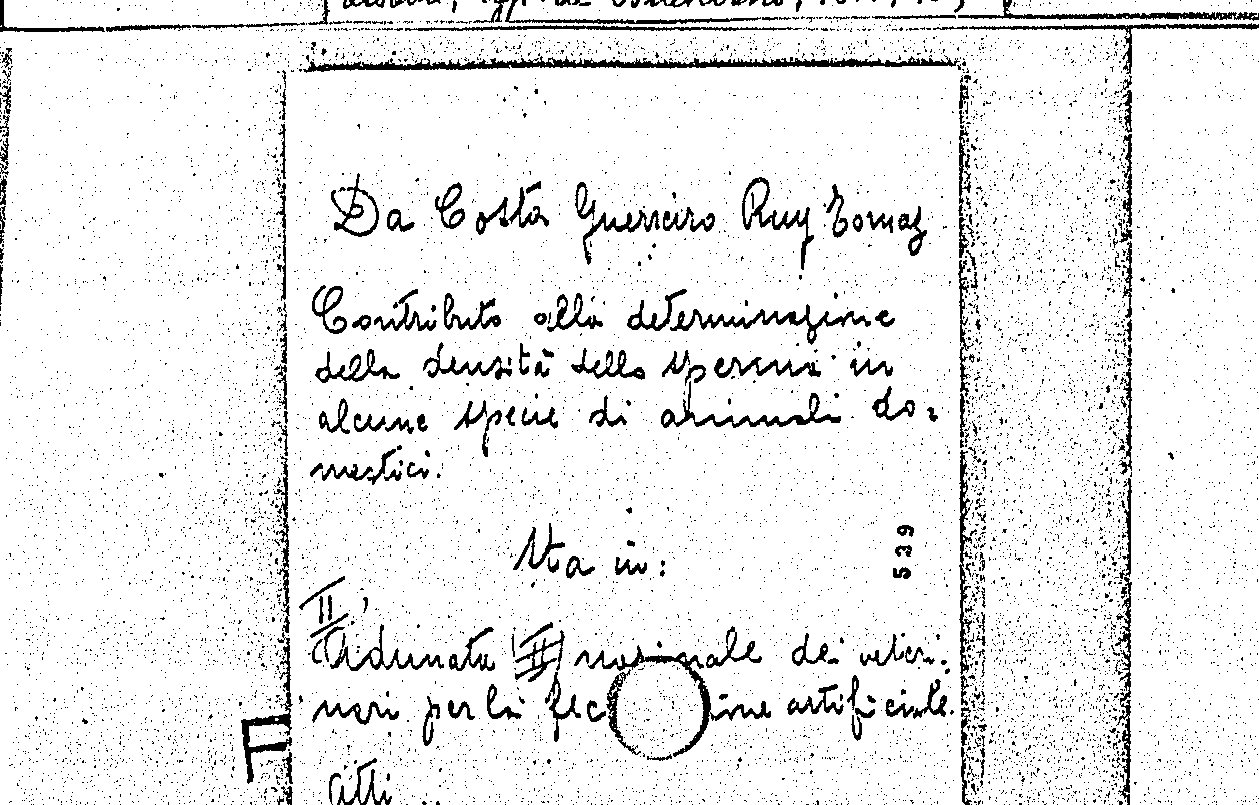 Da Costa Guerreiro Ruy Tomaz
Contributo alla determinazione
della densità dello sperma in
alcune specie di animali do=
mestici.
Sta in:
539
II
Adunata nazionale dei veteri-
nari per la fec ine artificiale.
F
Atti